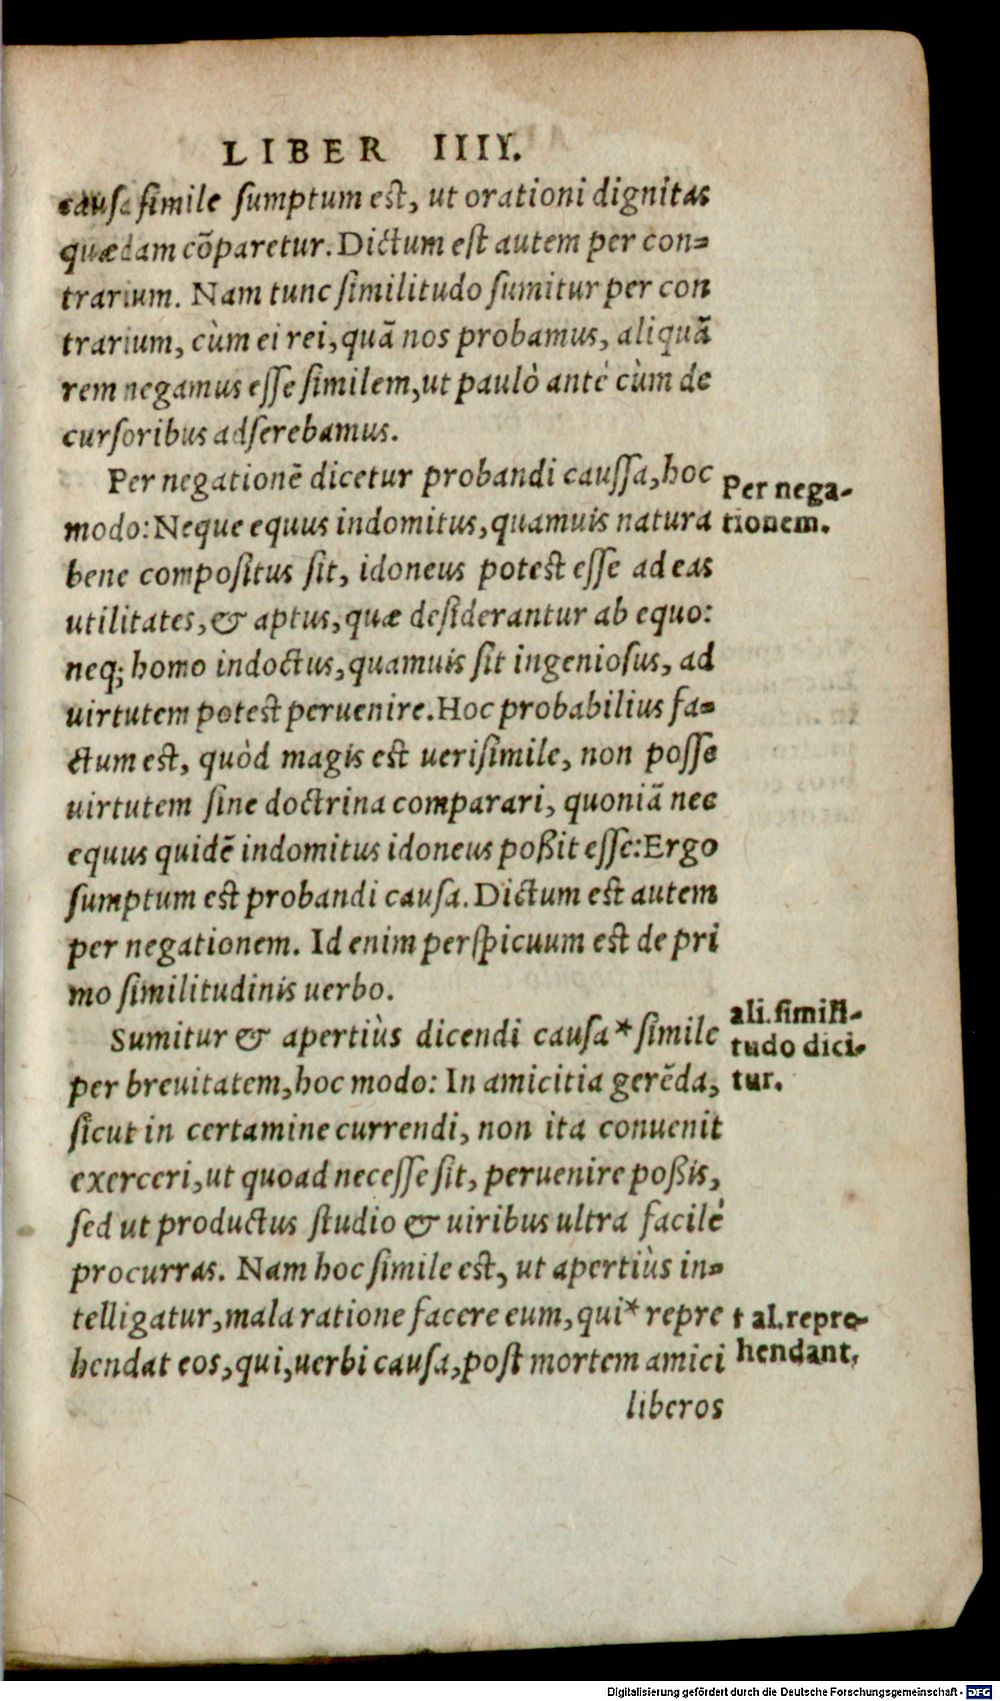 LIBER IIII.
causa simile sumptum est, ut orationi dignitas
quædam cōparetur. Dictum est autem per con-
trarium. Nam tunc similitudo sumitur per con
trarium, cùm ei rei, quā nos probamus, aliquā
rem negamus esse similem, ut paulò antè cùm de
cursoribus adserebamus.
Per negationē dicetur probandi caussa, hoc
modo: Neque equus indomitus, quamuis natura
bene compositus sit, idoneus potest esse ad eas
utilitates, & aptus, quæ desiderantur ab equo:
neq; homo indoctus, quamuis sit ingeniosus, ad
uirtutem potest peruenire. Hoc probabilius fa-
ctum est, quòd magis est uerisimile, non posse
uirtutem sine doctrina comparari, quoniā nec
equus quidē indomitus idoneus poßit esse: Ergo
sumptum est probandi causa. Dictum est autem
per negationem. Id enim perspicuum est de pri
mo similitudinis uerbo.
Sumitur & apertiùs dicendi causa * simile
per breuitatem, hoc modo: In amicitia gerēda,
sicut in certamine currendi, non ita conuenit
exerceri, ut quoad necesse sit, peruenire poßis,
sed ut productus studio & uiribus ultra facilè
procurras. Nam hoc simile est, ut apertiùs in-
telligatur, mala ratione facere eum, qui * repre
hendat eos, qui, uerbi causa, post mortem amici
liberos
Per nega-
tionem.
ali. simili-
tudo dici-
tur.
t al. repre-
hendant.
Digitalisierung gefördert durch die Deutsche Forschungsgemeinschaft - DFG